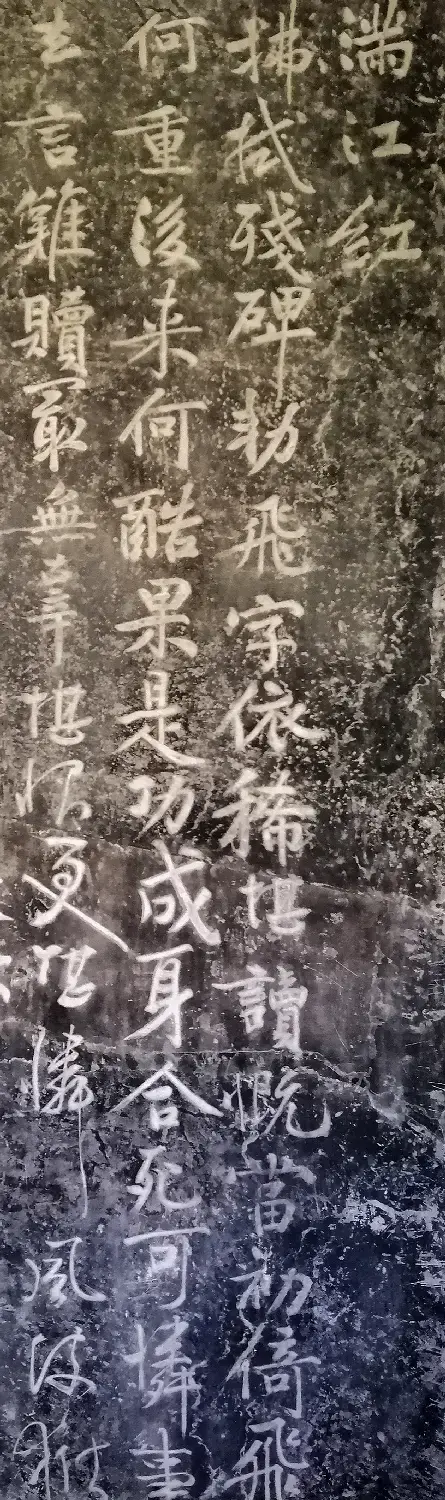 滿江紅
拂拭殘碑勅飛字依稀堪讀慨當初倚飛
何重後来何酷果是功成身合死可憐事
去言難贖冣無辜堪恨更堪憐風波獄